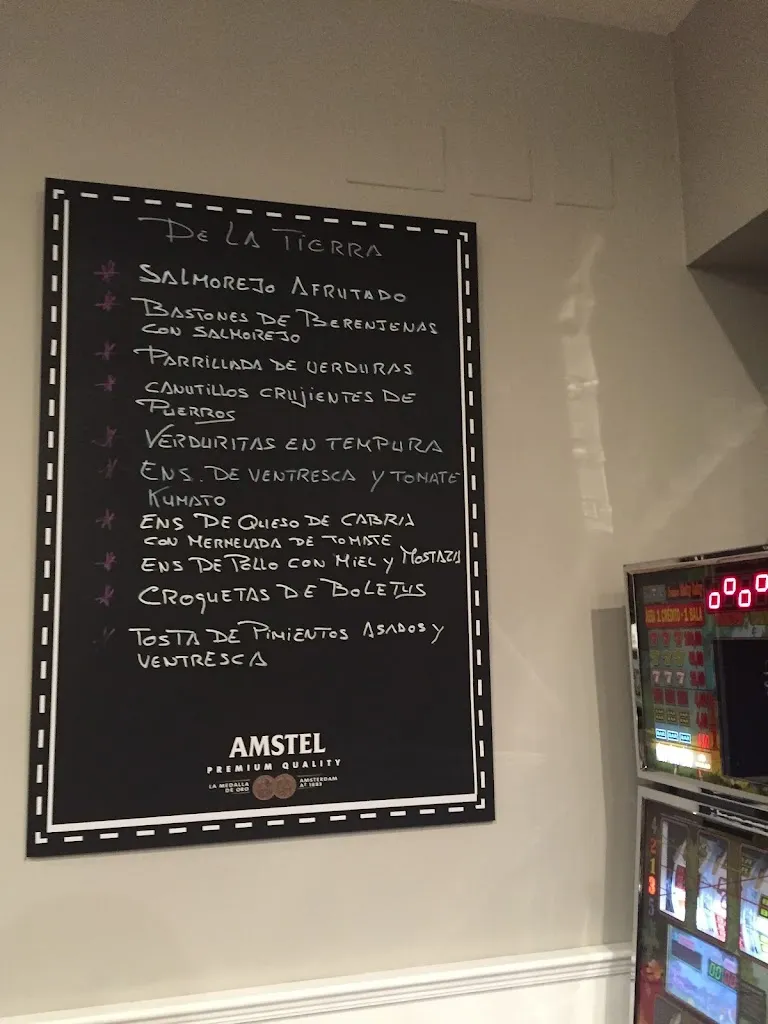 DE LA TIERRA
* SALMOREJO AFRUTADO
* BASTONES DE BERENJENAS
CON SALMOREJO
* PARRILLADA DE VERDURAS
* CANUTILLOS CRUJIENTES DE
PUERROS
* VERDURITAS EN TEMPURA
* ENS. DE VENTRESCA Y TOMATE
KUMATO
* ENS DE QUESO DE CABRA
CON MERMELADA DE TOMATE
* ENS DE POLLO CON MIEL Y MOSTAZA
* CROQUETAS DE BOLETUS
* TOSTA DE PIMIENTOS ASADOS Y
VENTRESCA
AMSTEL
PREMIUM QUALITY
LA MEDALLA
DE ORO
AMSTERDAM
AT 1883